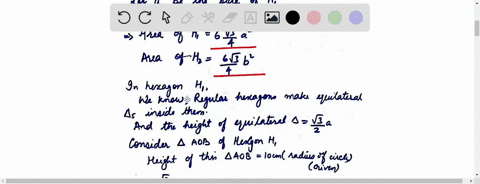 be the side of H₁
⇒ Area of H₁ = 6 √3/4 a²
Area of H₂ = 6√3/4 b²
In hexagon H₁,
We know, Regular hexagons make equilateral
Δs inside them.
And the height of equilateral Δ = √3/2 a
Consider Δ AOB of Hexagon H₁
Height of this ΔAOB = 10cm (radius of circle)
(Given)